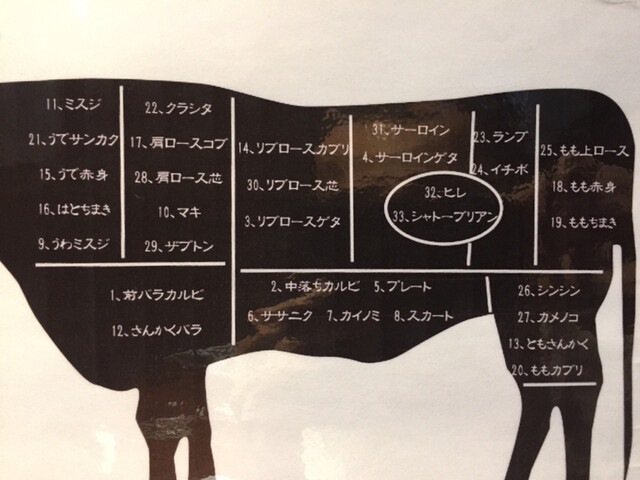 11、ミスジ
21、うでサンカク
15、うで赤身
16、はとちまき
9、うわミスジ
22、クラシタ
17、肩ロースコブ
28、肩ロース芯
10、マキ
29、ザブトン
14、リブロースカブリ
30、リブロース芯
3、リブロースゲタ
31、サーロイン
4、サーロインゲタ
32、ヒレ
33、シャトーブリアン
23、ランプ
24、イチボ
25、もも上ロース
18、もも赤身
19、ももちまき
1、前バラカルビ
12、さんかくバラ
2、中落ちカルビ 5、プレート
6、ササニク 7、カイノミ 8、スカート
26、シンシン
27、カメノコ
13、ともさんかく
20、ももカブリ